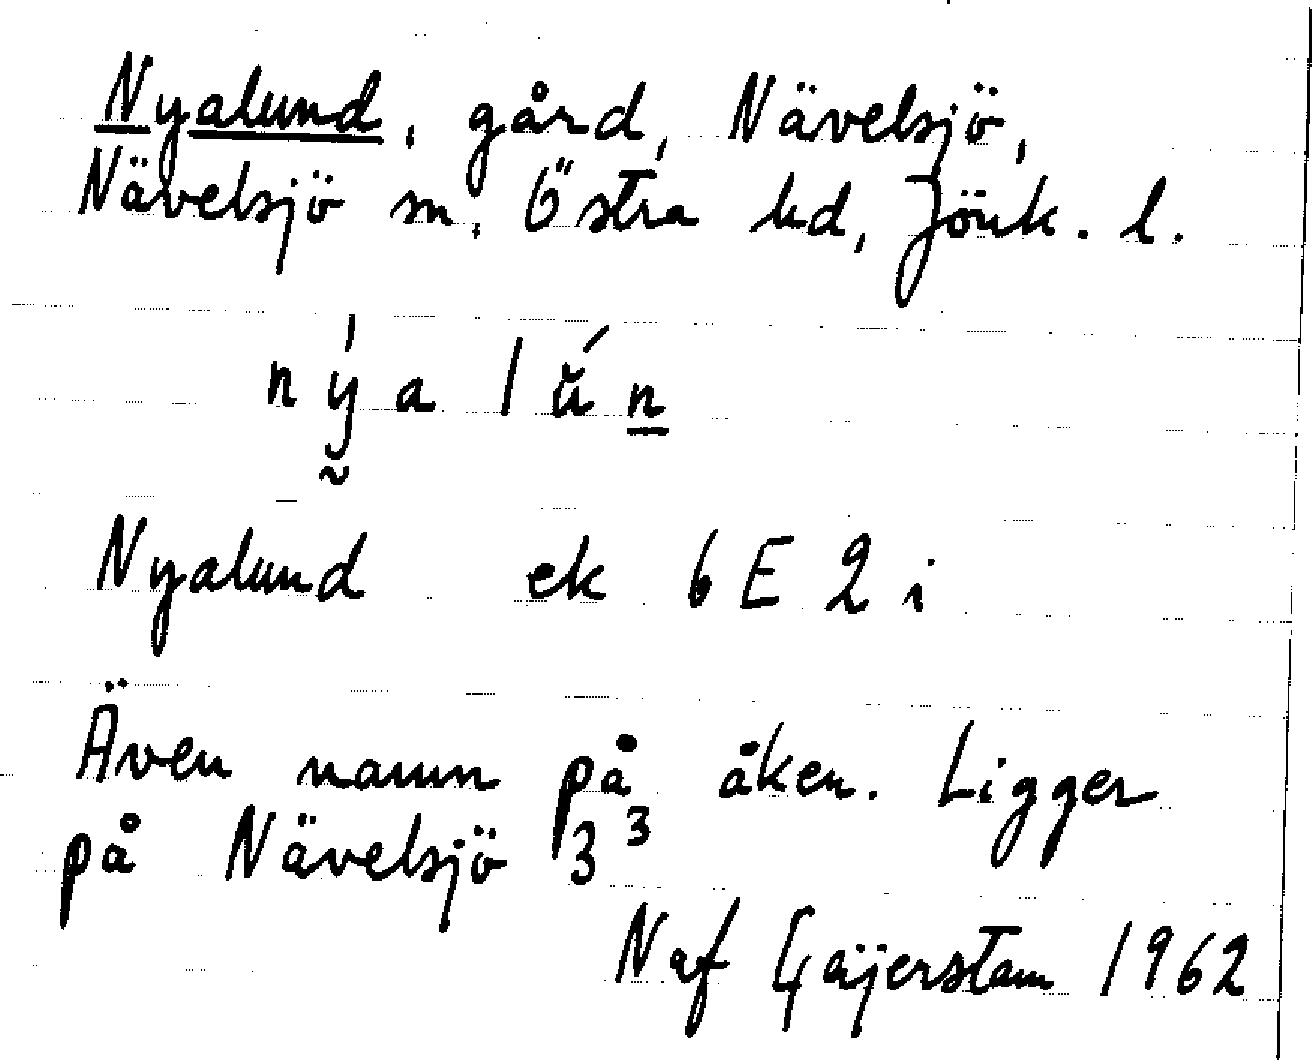 Nyalund, gård, Nävelsjö,
Nävelsjö sn, Östra hd, Jönk. l.
nýa lún
Nyalund ek 6 E 2 i
Även namn på åker. Ligger
på Nävelsjö 3³
N af Gäijerstam 1962